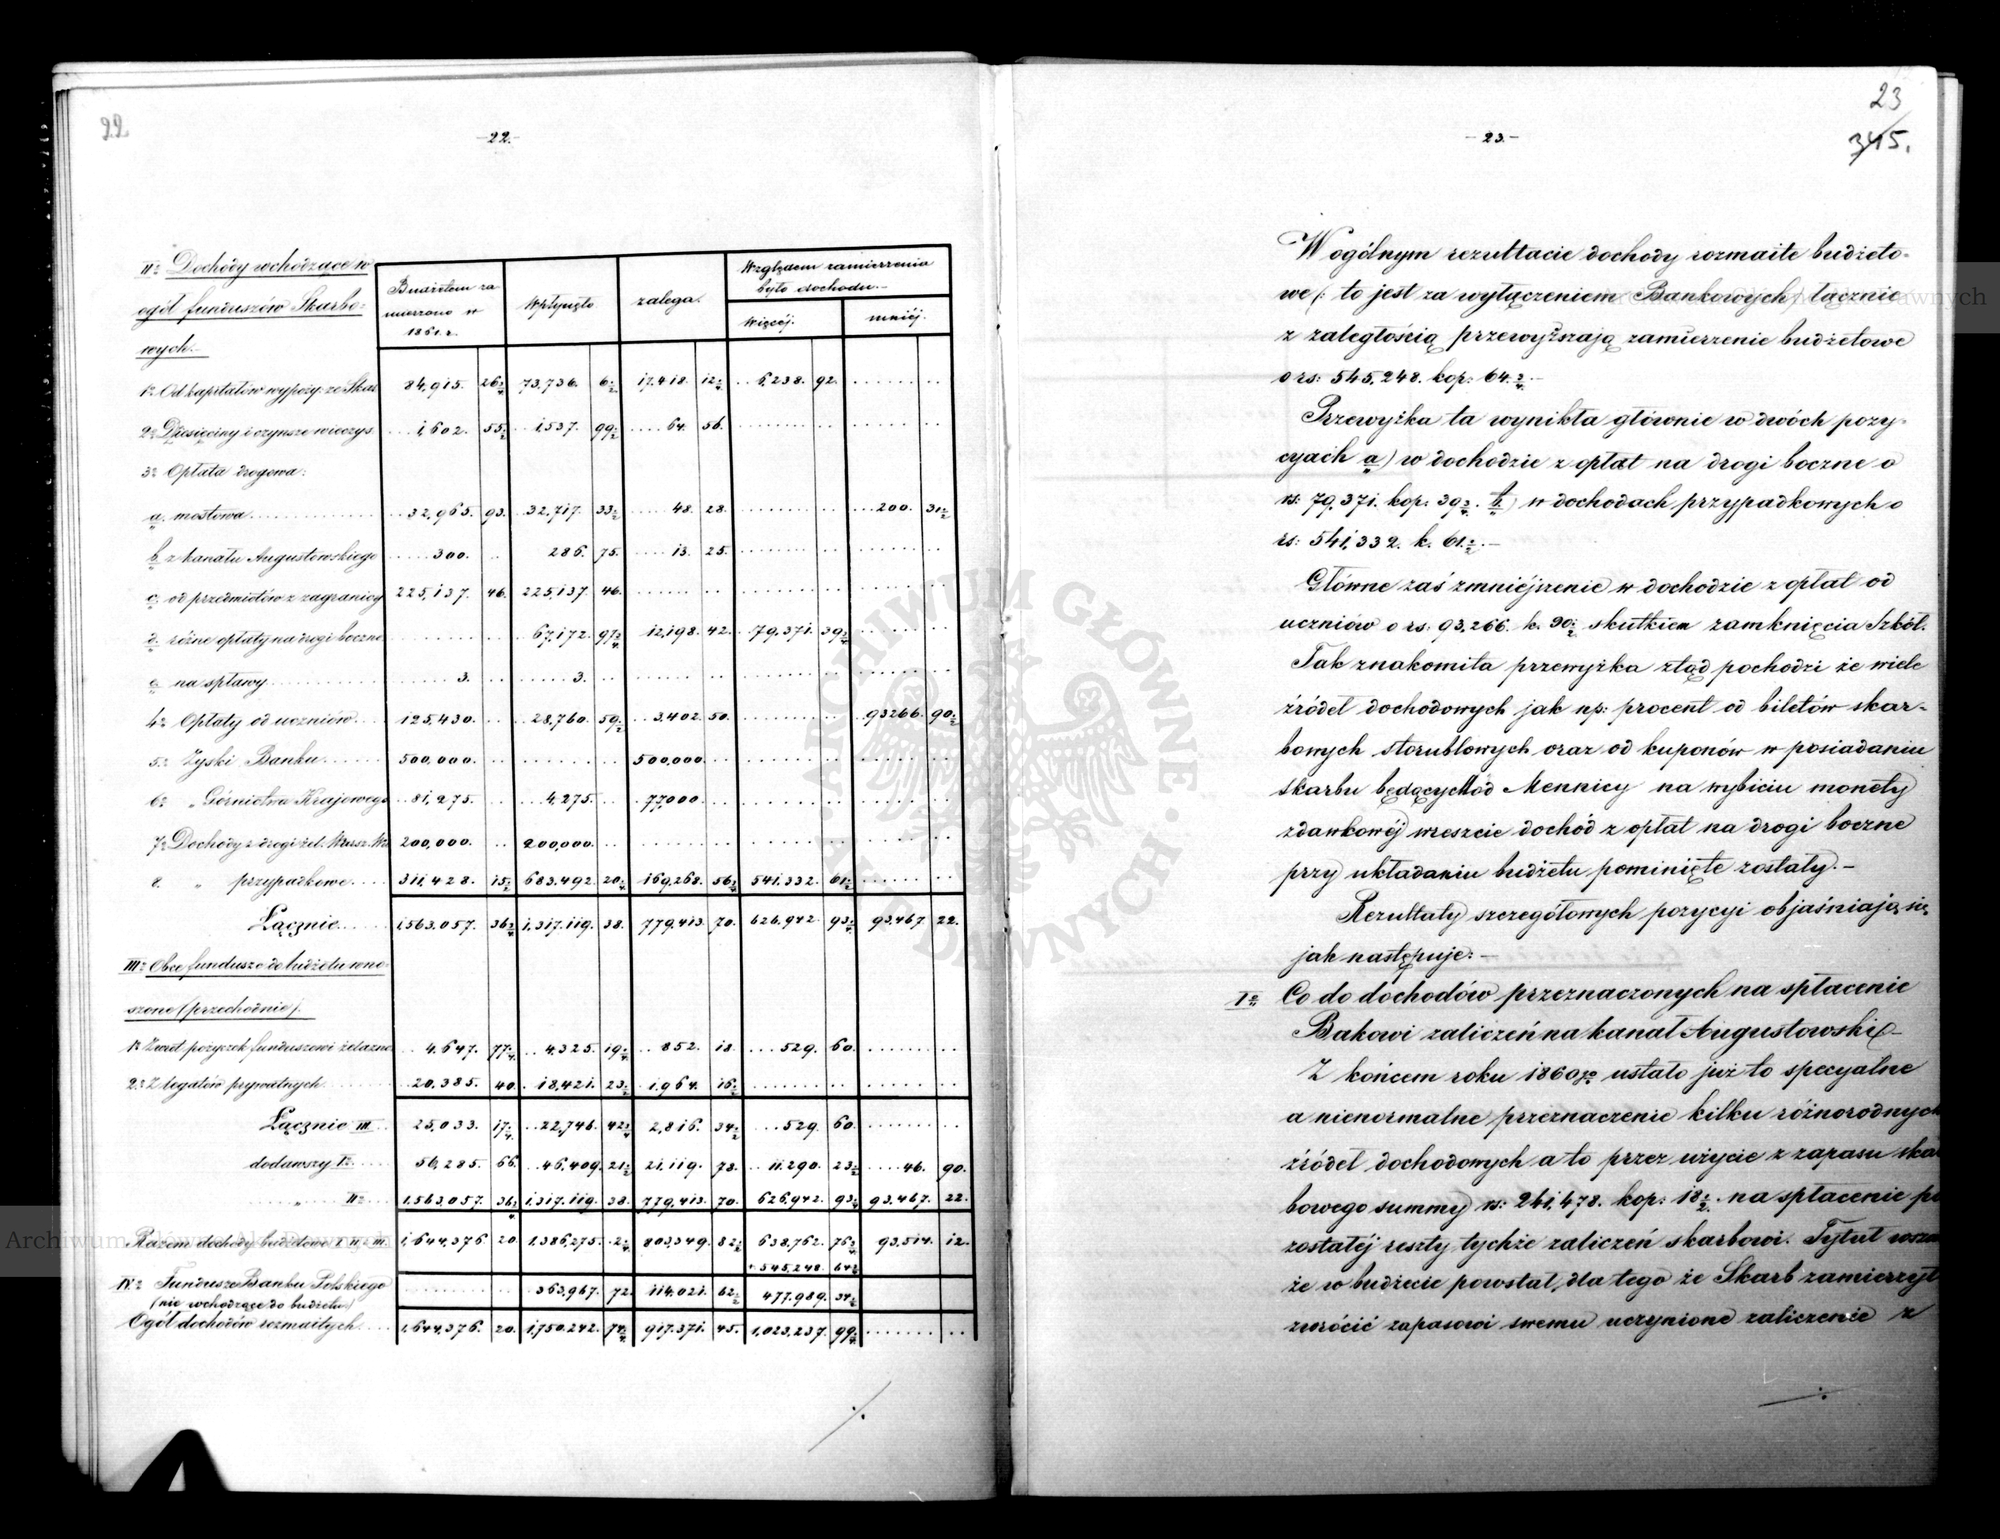 22.
-22.-
IIo Dochody wchodzące w
ogół funduszów Skarbo-
wych.-
Budżetem za
mierzono w
1861 r.
Wpłynęło
zalega.
Względem zamierzenia
było dochodu.-
więcej.
mniej.
1o Od kapitałów wypoży: ze Skar 84,915. 26 3/4 73,736. 6 1/2 17,418. 12 1/4 6,238. 92.
2o Dziesięciny i czynsze wieczys 1,602. 55 1/2 1,537. 99 1/2 64. 56.
3o Opłata drogowa:
a. mostowa 32,965. 93. 32,717. 33 1/2 48. 28. 200. 31 1/2
b z kanału Augustowskiego 300. 286. 75. 13. 25.
c. od przedmiotów z zagranicy 225,137. 46. 225,137. 46.
d. różne opłaty na drogi boczne 67,172. 97 3/4 12,198. 42. 79,371. 39 3/4
e na spławy 3. 3.
4o Opłaty od uczniów 125,430. 28,760. 59 1/2 3,402. 50. 93266. 90 1/2
5o Zyski Banku 500,000. 500,000.
6o „ Górnictwa Krajowego 81,275. 4,275. 77,000
7o Dochody z drogi żel: Warsz. W 200,000. 200,000.
8. „ przypadkowe 311,428. 15 1/2 683,492. 20 1/4 169,268. 56 1/2 541,332. 61 1/2
Łącznie 1,563,057. 36 3/4 1,317,119. 38. 779,413. 70. 626,942. 93 3/4 93,467 22.
IIIo Obce fundusze do budżetu wno-
szone (przechodnie).
1o Zwrot pożyczek funduszowi żelazne 4,647. 77 1/4 4,325. 19 1/4 852. 18. 529. 60.
2o Z legatów prywatnych 20,385. 40. 18,421. 23 1/2 1,964. 16 1/2
Łącznie III 25,033. 17 1/4 22,746. 42 3/4 2,816. 34 1/2 529. 60.
dodawszy Io 56,285. 66. 46,409. 21 1/2 21,119. 78. 11,290. 23 1/2 46. 90.
„ IIo 1,563,057. 36 3/4 1,317,119. 38. 779,413. 70. 626,942. 93 3/4 93,467. 22.
Razem dochody budżetowe I. II. III. 1,644,376 20. 1,386,275. 2 1/4 803,349. 82 1/2 638,762. 76 3/4 93,514. 12.
+ 545,248. 64 3/4
IVo Fundusze Banku Polskiego
(nie wchodzące do budżetu) 363,967. 72. 114,021. 62 1/2 477,989. 34 1/2
Ogół dochodów rozmaitych 1,644,376. 20. 1,750,242. 74 1/4 917,371. 45. 1,023,237. 99 1/4
./.
23
345.
-23.-
W ogólnym rezultacie dochody rozmaite budżeto-
we (: to jest za wyłączeniem Bankowych) łącznie
z zaległością przewyższają zamierzenie budżetowe
o rs: 545,248. kop: 64 3/4.-
Przewyżka ta wynikła głównie w dwóch pozy-
cyach a) w dochodzie z opłat na drogi boczne o
rs: 79,371. kop: 39 3/4. b) w dochodach przypadkowych o
rs: 541,332. k. 61 1/2.-
Główne zaś zmniéjszenie w dochodzie z opłat od
uczniów o rs: 93,266. k. 90 1/2 skutkiem zamknięcia Szkół.
Tak znakomita przewyżka ztąd pochodzi że wiele
źródeł dochodowych jak np: procent od biletów skar-
bowych storublowych oraz od kuponów w posiadaniu
skarbu będących od Mennicy na wybiciu monety
zdawkowéj wreszcie dochód z opłat na drogi boczne
przy układaniu budżetu pominięte zostały.-
Rezultaty szczegółowych pozycyi objaśniają się
jak następuje:-
Io Co do dochodów przeznaczonych na spłacenie
Bakowi zaliczeń na kanał Augustowski.-
Z końcem roku 1860go ustało już to specyalne
a nienormalne przeznaczenie kilku różnorodnych
źródeł dochodowych a to przez użycie z zapasu ska
bowego summy rs: 241,478. kop: 18 1/2. na spłacenie p
zostałéj reszty tychże zaliczeń skarbowi. Tytuł wsza
że w budżecie powstał, dla tego że Skarb zamierzył
zwrócić zapasowi swemu uczynione zaliczenie z
./.
ARCHIWUM GŁÓWNE AKT DAWNYCH
Archiwum Główne Akt Dawnych